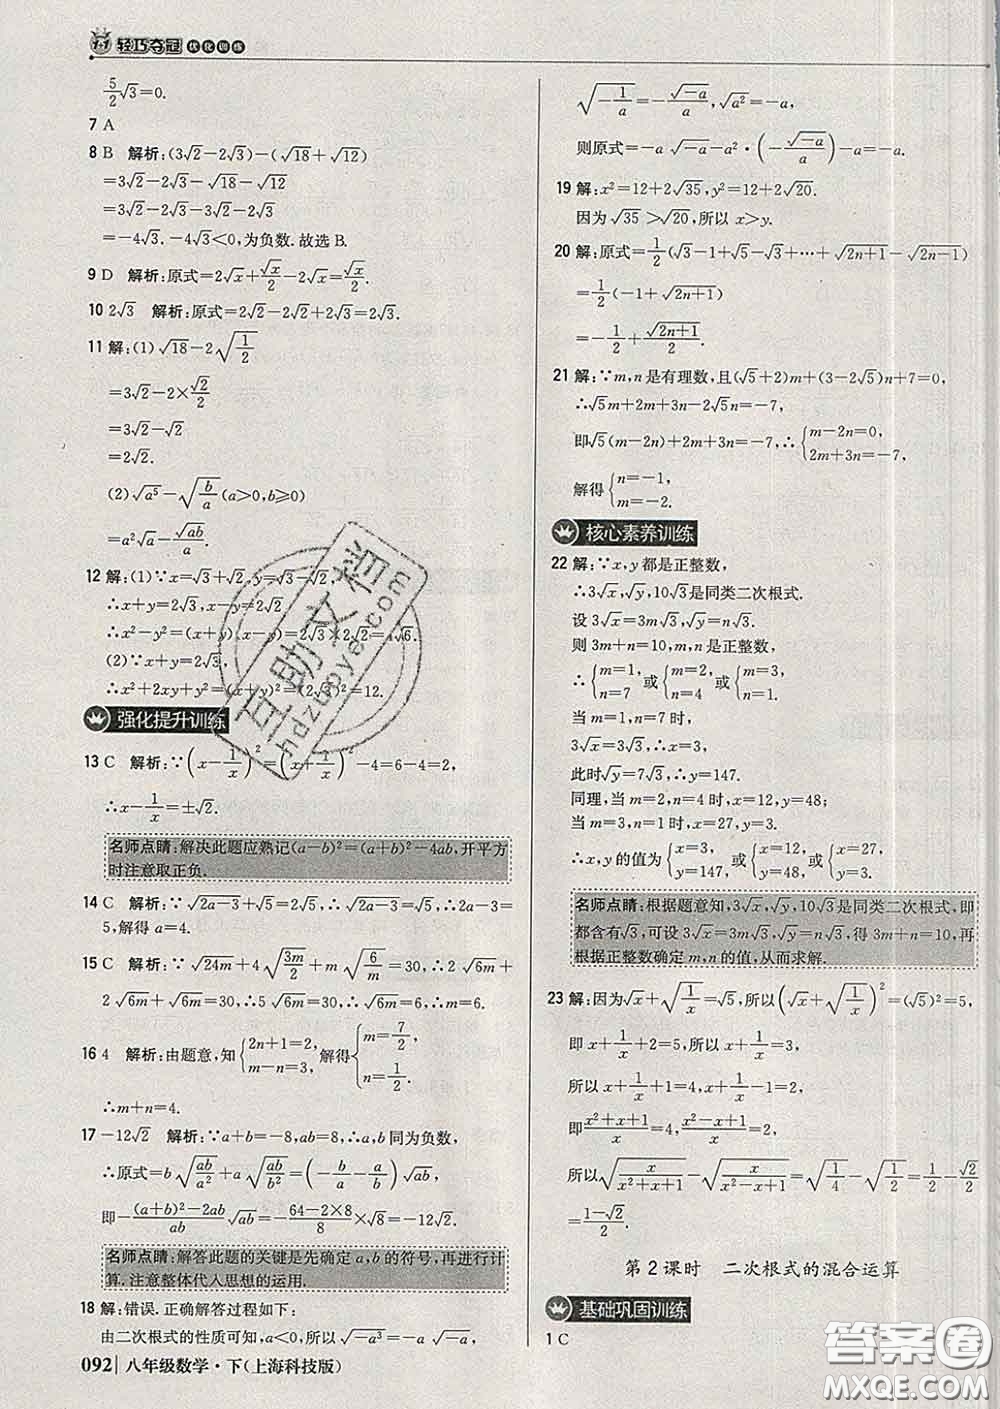 1+1 轻巧夺冠 优化训练
5/2√3=0.
7 A
8 B 解析:(3√2-2√3)-(√18+√12)
=3√2-2√3-√18-√12
=3√2-2√3-3√2-2√3
=-4√3.-4√3<0,为负数.故选B.
9 D 解析:原式=2√x+√x/2-2√x=√x/2.
10 2√3 解析:原式=2√2-2√2+2√3=2√3.
11 解:(1)√18-2√(1/2)
=3√2-2×√2/2
=3√2-√2
=2√2.
(2)√a⁵-√(b/a)(a>0,b≥0)
=a²√a-√ab/a.
12 解:(1)∵x=√3+√2,y=√3-√2,
∴x+y=2√3,x-y=2√2,
∴x²-y²=(x+y)(x-y)=2√3×2√2=4√6.
(2)∵x+y=2√3,
∴x²+2xy+y²=(x+y)²=(2√3)²=12.
强化提升训练
13 C 解析:∵(x-1/x)²=(x+1/x)²-4=6-4=2,
∴x-1/x=±√2.
名师点睛:解决此题应熟记(a-b)²=(a+b)²-4ab,开平方
时注意取正负.
14 C 解析:∵√(2a-3)+√5=2√5,∴√(2a-3)=√5,∴2a-3=
5,解得a=4.
15 C 解析:∵√24m+4√(3m/2)+m√(6/m)=30,∴2√6m+
2√6m+√6m=30,∴5√6m=30,∴√6m=6,∴m=6.
16 4 解析:由题意,知{2n+1=2, m-n=3, 解得{m=7/2, n=1/2.
∴m+n=4.
17 -12√2 解析:∵a+b=-8,ab=8,∴a,b同为负数,
∴原式=b√(ab/a²)+a√(ab/b²)=(-b/a-a/b)√ab,
即-((a+b)²-2ab)/ab √ab=-(64-2×8)/8×√8=-12√2.
名师点睛:解答此题的关键是先确定a,b的符号,再进行计
算.注意整体代入思想的运用.
18 解:错误.正确解答过程如下:
由二次根式的性质可知,a<0,所以√(-a³)=-a√(-a),
092 八年级数学·下(上海科技版)
√(-1/a)=-√(-a)/a,√a²=-a,
则原式=-a√(-a)-a²·(-√(-a)/a)-a=-a.
19 解:x²=12+2√35,y²=12+2√20.
因为√35>√20,所以x>y.
20 解:原式=1/2(√3-1+√5-√3+…+√(2n+1)-√(2n-1))
=1/2(-1+√(2n+1))
=-1/2+√(2n+1)/2.
21 解:∵m,n是有理数,且(√5+2)m+(3-2√5)n+7=0,
∴√5m+2m+3n-2√5n=-7,
即√5(m-2n)+2m+3n=-7,∴{m-2n=0, 2m+3n=-7,
解得{n=-1, m=-2.
核心素养训练
22 解:∵x,y都是正整数,
∴3√x,√y,10√3是同类二次根式.
设3√x=3m√3,√y=n√3.
则3m+n=10,m,n是正整数,
∴{m=1, n=7 或{m=2, n=4 或{m=3, n=1.
当m=1,n=7时,
3√x=3√3,∴x=3;
此时√y=7√3,∴y=147.
同理,当m=2,n=4时,x=12,y=48;
当m=3,n=1时,x=27,y=3.
∴x,y的值为{x=3, y=147, 或{x=12, y=48, 或{x=27, y=3.
名师点睛:根据题意知,3√x,√y,10√3是同类二次根式,即
都含有√3,可设3√x=3m√3,√y=n√3,得3m+n=10,再
根据正整数确定m,n的值,从而求解.
23 解:因为√x+√(1/x)=√5,所以(√x+√(1/x))²=(√5)²=5,
即x+1/x+2=5,所以x+1/x=3,
所以x+1/x+1=4,x+1/x-1=2,
即(x²+x+1)/x=4,(x²-x+1)/x=2,
所以√(x/(x²+x+1))-√(x/(x²-x+1))=√(1/4)-√(1/2)=1/2-√2/2
=(1-√2)/2.
第2课时 二次根式的混合运算
基础巩固训练
1 C
互助文档
hdzuoye.com
答案圈
MXQE.COM